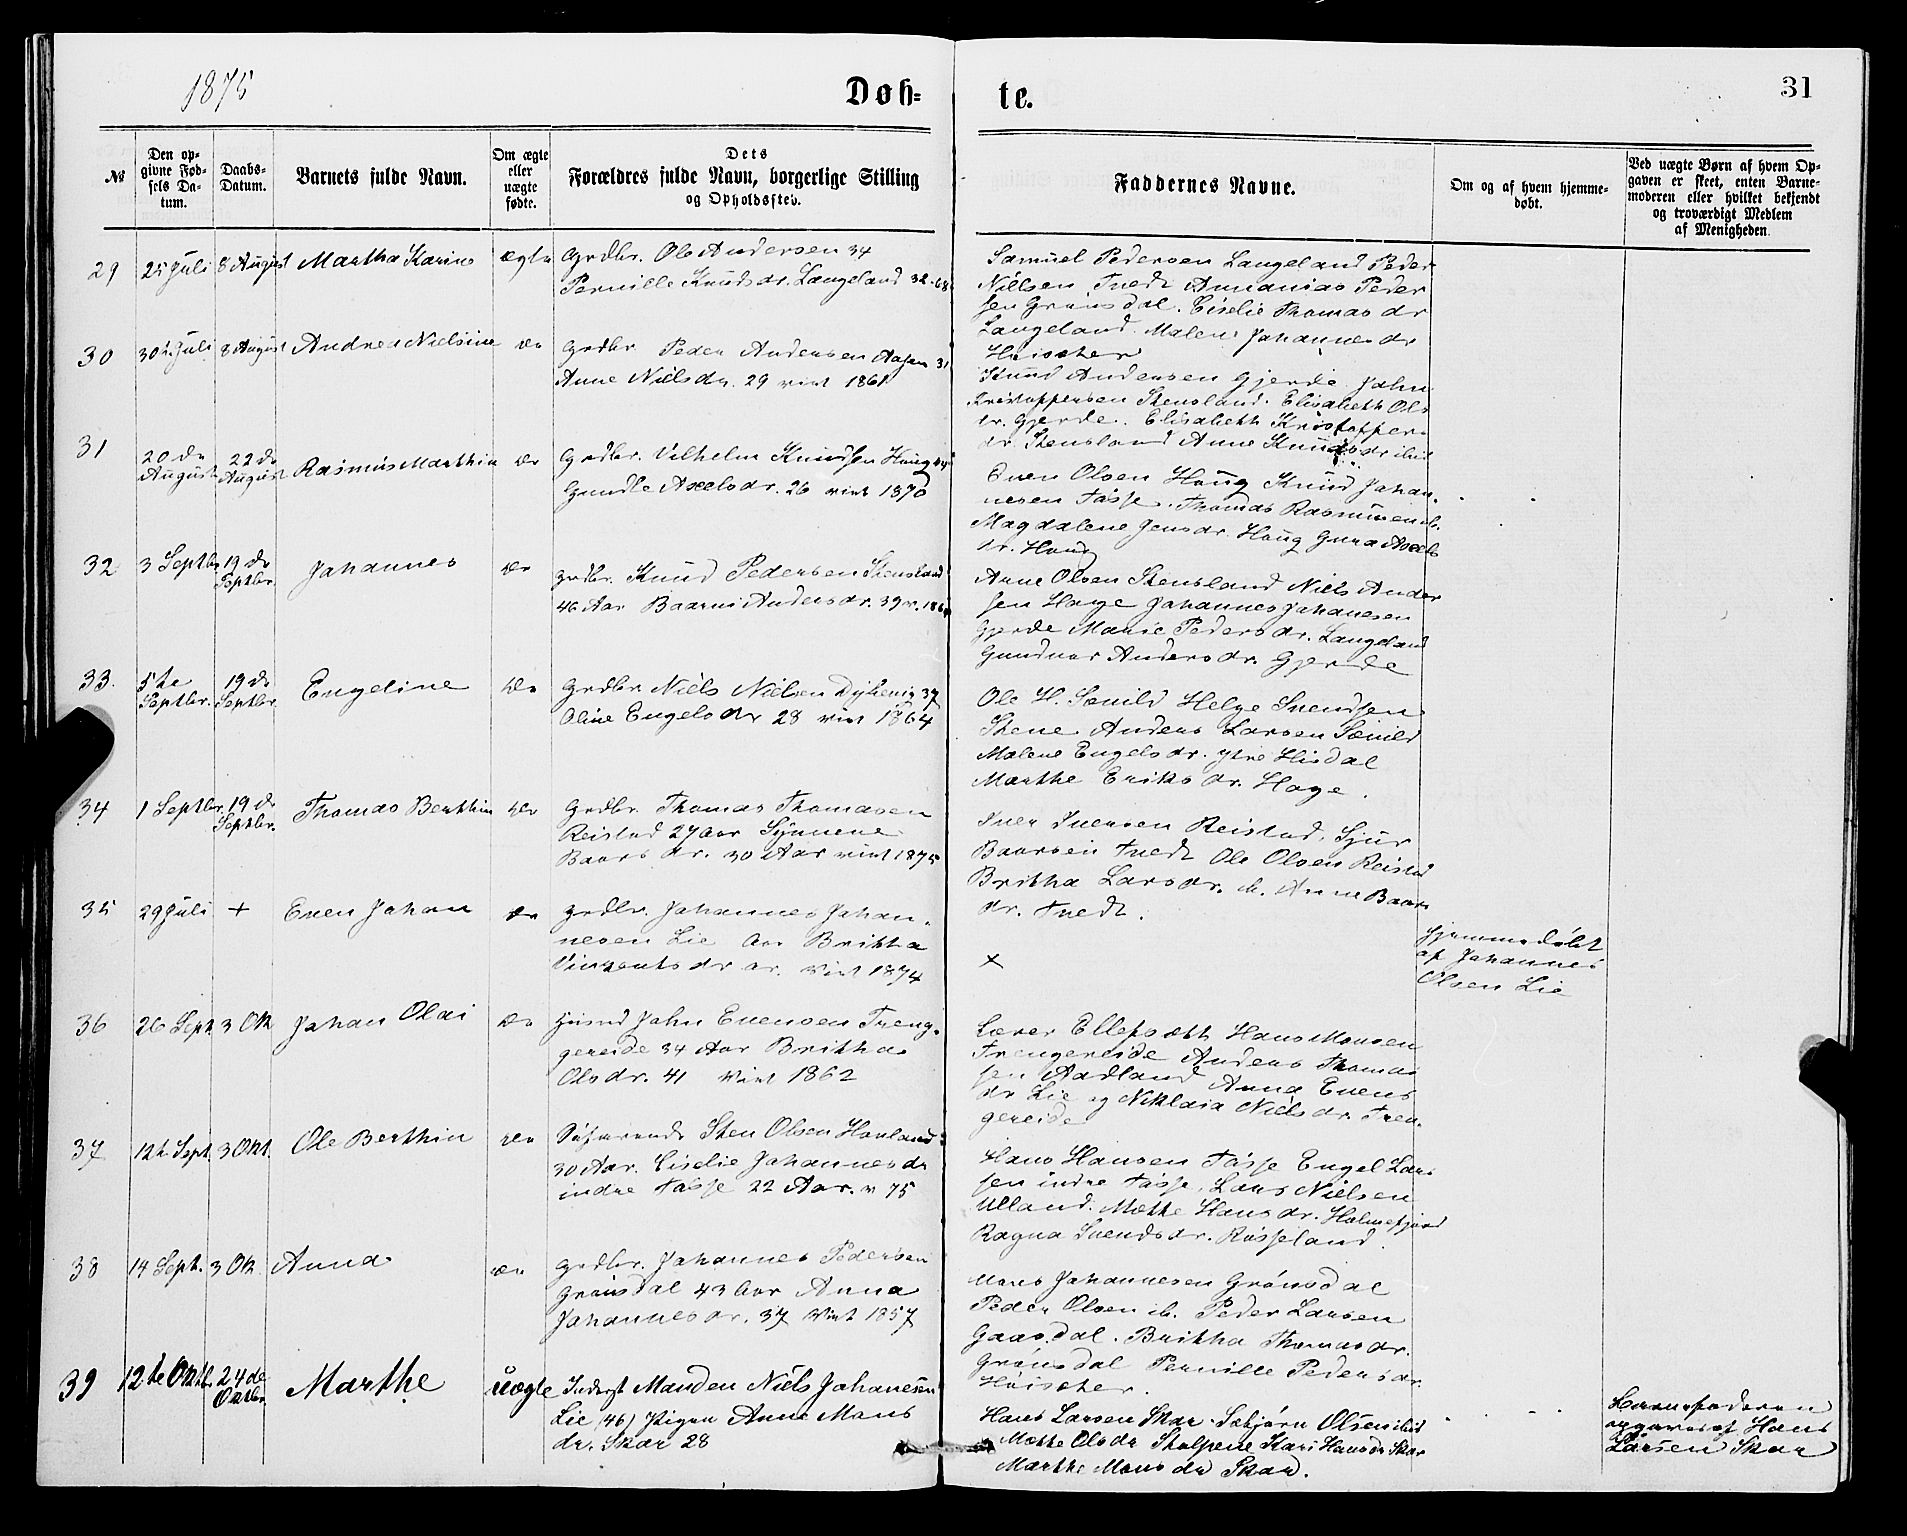 1875
Døb-
te.
31
№
Den op-
givne Fød-
sels Da-
tum.
Daabs-
Datum.
Barnets fulde Navn.
Om ægte
eller
uægte
fødte.
Dets
Forældres fulde Navn, borgerlige Stilling
og Opholdssted.
Faddernes Navne.
Om og af hvem hjemme-
døbt.
Ved uægte Børn af hvem Op-
gaven er skeet, enten Barne-
moderen eller hvilket bekjendt
og troværdigt Medlem
af Menigheden.
29
25 Juli
8 August
Martha Karine
ægte
Grdbr. Ole Andersen 34
Pernille Knudsdr. Langeland 32 - 68
Samuel Pedersen Langeland Peder
Nilsen Tvedt Annanias Peder
sen Grønsdal. Ciselie Thomasdr
Langeland. Malene Johannesdr
Høisæter
30
30te Juli
8 August
Andrea Nielsine
do
Grdbr Peder Andersen Aasen 31
Anne Nielsdr. 29 viet 1861
Knud Andersen Gjerde John
Kristoppersen Stensland. Elisabeth Ols
dr. Gjerde. Elisabeth Kristoffer
dr. Stensland Anne Knudsdr ibid
31
20 de
August
22 de
August
Rasmus Marthin
do
Grdbr. Vilhelm Knudsen Haug
Gundle Axelsdr. 26 viet 1870
Even Olsen Haug Knud Johan-
nesen Tøsse. Thomas Rasmussen ib.
Magdalene Jensdr. Haug Guna Axels
dr. Haug
32
3 Septbr
19 de
Septbr.
Johannes
do
Grdbr. Knud Pedersen Stensland
46 Aar Baarni Andersdr. 39 v. 186
Arne Olsen Stensland Niels Ander
sen Hage Johannes Johanesen
Gjerde Marie Pedersdr. Langeland
Gundvor Andersdr. Gjerde
33.
5te
Septbr.
19 de
Septbr.
Engeline
do
Grdbr Niels Nielsen Dyhevig 37
Oline Engelsdr 28 viet 1864
Ole H. Sævild Helge Svendsen
Stene Anders Larsen Sævild
Malene Engelsdr. ytre Hisdal
Marthe Eriksdr. Hage.
34
1 Septbr.
19 de
Septbr.
Thomas Berthin
do
Grdbr. Thomas Thomasen
Reistad 27 aar Synneve
Baarsdr. 30 Aar viet 1875
Iver Iversen Reistad, Sjur
Baarsen Tvedt Ole Olsen Reistad
Britha Larsdr. ib. Anne Baars
dr. Tvedt.
35
29 Juli
+
Even Johan
do
Grdbr. Johannes Johan-
nesen Lie Aar Britha
Vinzentsdr ar. viet 1874
+
Hjemmedøbt
af Johannes
Olsen Lie
36
26 Sept.
3 Okt
Johan Olai
do
Husmd John Evensen Treng-
gereide 34 Aar Britha
Olsdr. 41 Viet 1862
Lærer Ellefsæth Hans Monsen
Trengereide Anders Thomas
sen Aadland Anna Evens
dr Lie og Niklaia Nielsdr. Tren-
gereide
37
12te Sept.
3 Okt.
Ole Berthin
do
Søfarende Sten Olsen Havland
30 Aar. Ciselie Johannesdr
indre Tøsse 22 Aar. v 75
Hans Hansen Tøsse Engel Lar
sen indre Tøsse. Lars Nielsen
Ulland. Mætte Hansdr. Holmefjord
Ragna Svendsdr. Røsseland.
38
14 Sept.
3 Okt.
Anna
do
Grdbr. Johannes Pedersen
Grønsdal 43 Aar Anna
Johannesdr. 37 Viet 1857
Mons Johannesen Grønsdal
Peder Olsen ib. Peder Larsen
Gaasdal. Britha Thomasdr.
Grønsdal Pernille Pedersdr.
Høisæter.
39
12te Oktb.
24de
Oktbr.
Marthe
uægte
Inderst Manden Niels Johanesen
Lie (46) Pigen Anne Mons
dr. Skar 28
Hans Larsen Skar. Sebjørn Olsen ibid
Mætte Olsdr Skulpene Kari Hansdr Skar
Marthe Monsdr Skar.
Barnefaderen
opgaves af Hans
Larsen Skar